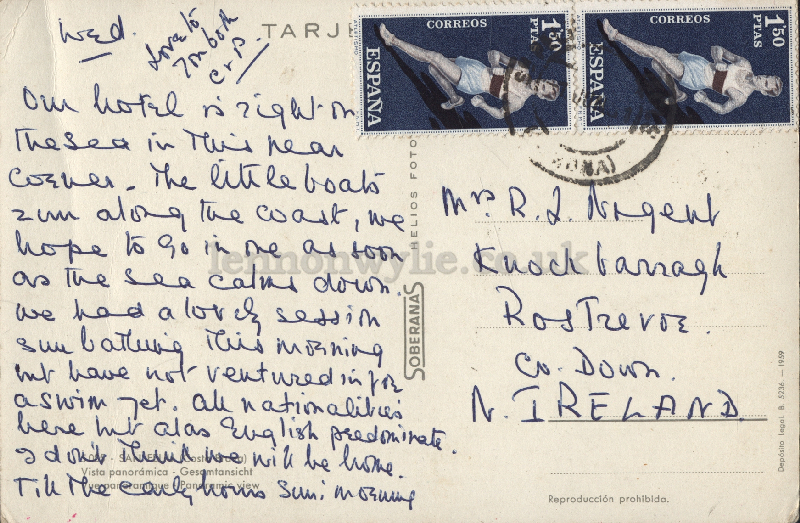 TARJE
Wed.
Love to
you both
C & P.
Our hotel is right on
the sea in this near
corner. The little boats
zum along the coast, we
hope to go in one as soon
as the sea calms down.
we had a lovely session
sun bathing this morning
but have not ventured in for
a swim yet. All nationalities
here but alas English predominate.
I don't think we will be home.
Till the early hours Sun: morning
Vista panorámica - Gesamtansicht
Vue panoramique - Panoramic view
CORREOS
1'50
PTAS
ESPAÑA
CORREOS
1'50
PTAS
ESPAÑA
HELIOS FOTO
SOBERANAS
Mrs R. J. Nugent
Knockbarragh
Rostrevor.
Co. Down.
N. IRELAND.
Depósito Legal. B. 5236 - 1959
Reproducción prohibida.
lennonwylie.co.uk